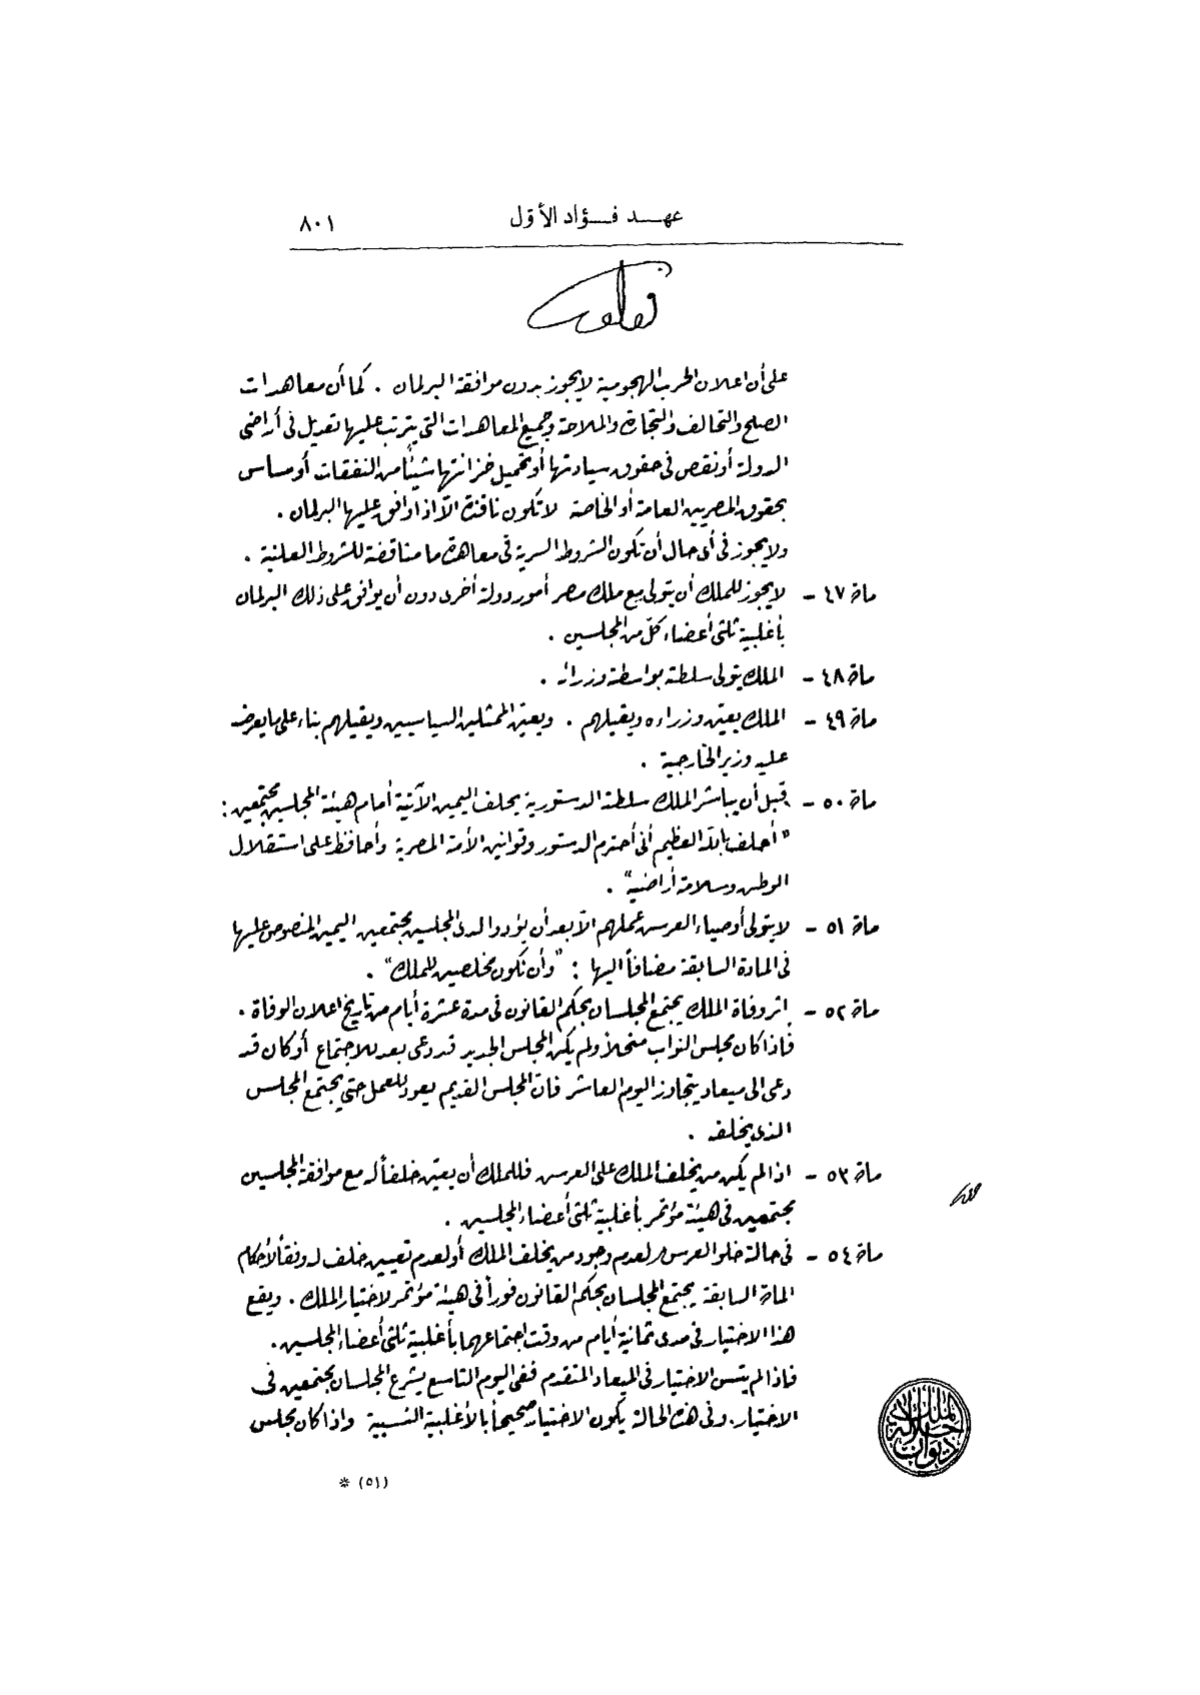 عهد فؤاد الأول ٨٠١
على أن اعلان الحرب الهجومية لا يجوز بدون موافقة البرلمان . كما أن معاهدات
الصلح والتحالف والتجارة والملاحة وجميع المعاهدات التي يترتب عليها تعديل في أراضى
الدولة أو نقص في حقوق سيادتها أو تحميل خزانتها شيئاً من النفقات أو مساس
بحقوق المصريين العامة أو الخاصة لا تكون نافذة الا اذا وافق عليها البرلمان .
ولا يجوز في أى حال أن تكون الشروط السرية في معاهدة ما مناقضة للشروط العلنية .
مادة ٤٧ - لا يجوز للملك أن يتولى مع ملك مصر أمور دولة أخرى دون أن يوافق على ذلك البرلمان
بأغلبية ثلثى أعضاء كلّ من المجلسين .
مادة ٤٨ - الملك يتولى سلطته بواسطة وزرائه .
مادة ٤٩ - الملك يعيّن وزراءه ويقيلهم . ويعيّن الممثلين السياسيين ويقيلهم بناء على ما يعرضه
عليه وزير الخارجية .
مادة ٥٠ - قبل أن يباشر الملك سلطته الدستورية يحلف اليمين الآتية أمام هيئة المجلسين مجتمعين :
"أحلف بالله العظيم أنى أحترم الدستور وقوانين الأمة المصرية وأحافظ على استقلال
الوطن وسلامة أراضيه" .
مادة ٥١ - لا يتولى أوصياء العرش عملهم الا بعد أن يؤدوا لدى المجلسين مجتمعين اليمين المنصوص عليها
في المادة السابقة مضافاً اليها : "وأن نكون مخلصين للملك" .
مادة ٥٢ - اثر وفاة الملك يجتمع المجلسان بحكم القانون في مدة عشرة أيام من تاريخ اعلان الوفاة .
فاذا كان مجلس النواب منحلاً ولم يكن المجلس الجديد قد دعى بعد للاجتماع أو كان قد
دعى الى ميعاد يتجاوز اليوم العاشر فان المجلس القديم يعود للعمل حتى يجتمع المجلس
الذى يخلفه .
مادة ٥٣ - اذا لم يكن من يخلف الملك على العرش فللملك أن يعيّن خلفاً له مع موافقة المجلسين
مجتمعين في هيئة مؤتمر بأغلبية ثلثى أعضاء المجلسين .
مادة ٥٤ - في حالة خلو العرش لعدم وجود من يخلف الملك أو لعدم تعيين خلف له وفقاً لأحكام
المادة السابقة يجتمع المجلسان بحكم القانون فوراً في هيئة مؤتمر لاختيار الملك . ويقع
هذا الاختيار في مدى ثمانية أيام من وقت اجتماعهما بأغلبية ثلثى أعضاء المجلسين .
فاذا لم يتسن الاختيار في الميعاد المتقدم ففى اليوم التاسع يشرع المجلسان مجتمعين في
الاختيار . وفى هذه الحالة يكون الاختيار صحيحاً بالأغلبية النسبية واذا كان مجلس
ديوان جلالة الملك
(٥١) *